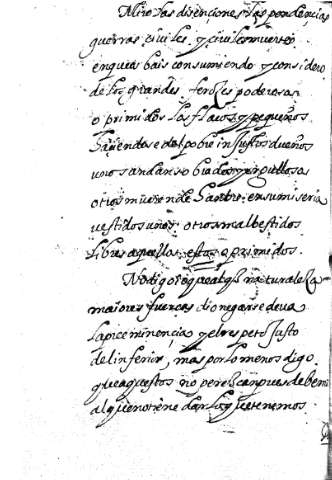 Miro las disenciones las pendencias
guerras civiles y civilmuertes
en que os bais consumiendo y considero
de los grandes feroses poderosas
oprimidos los flacos y pequeños
haziendose del pobre injustos dueños
unos andan sobrados y orgullosos
otros mueren de hambre, en su miseria
vestidos unos, otros mal bestidos
libres aquellos, estos oprimidos.
No digo que al q naturaleza
maiores fuerzas dio negar se deva
la preeminencia y el respeto justo
del inferior, mas por lo menos digo
que aquestos no perescan pues debemos
al que no tiene dar lo que tenemos.